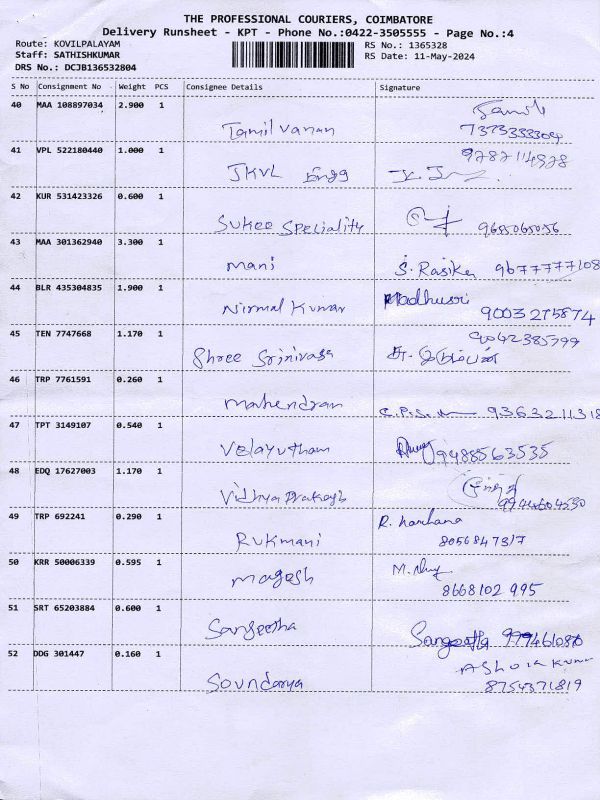 THE PROFESSIONAL COURIERS, COIMBATORE
Delivery Runsheet - KPT - Phone No.:0422-3505555 - Page No.:4
Route: KOVILPALAYAM RS No.: 1365328
Staff: SATHISHKUMAR RS Date: 11-May-2024
DRS No.: DCJB136532804
S No Consignment No Weight PCS Consignee Details Signature
40 MAA 108897034 2.900 1
Tamil vanan 7373333304
41 VPL 522180440 1.000 1 9787114978
JKVL Engg
42 KUR 531423326 0.600 1
Sukee Speciality 9685065056
43 MAA 301362940 3.300 1
mani S. Rasika 9677777108
44 BLR 435304835 1.900 1 Madhusri
Nirmal Kumar 9003275874
45 TEN 7747668 1.170 1 9042385799
Shree Srinivasa
46 TRP 7761591 0.260 1
Mahendran C.P.S. 9363211318
47 TPT 3149107 0.540 1
Velayutham 9488563535
48 EDQ 17627003 1.170 1
Vidhya Prakash
49 TRP 692241 0.290 1 R.
Rukmani 8056847317
50 KRR 50006339 0.595 1 M.
magesh 8668102 995
51 SRT 65203884 0.600 1
Sangeetha Sangeetha
52 DDG 301447 0.160 1 Ashok Kumar
Soundarya 8754371819